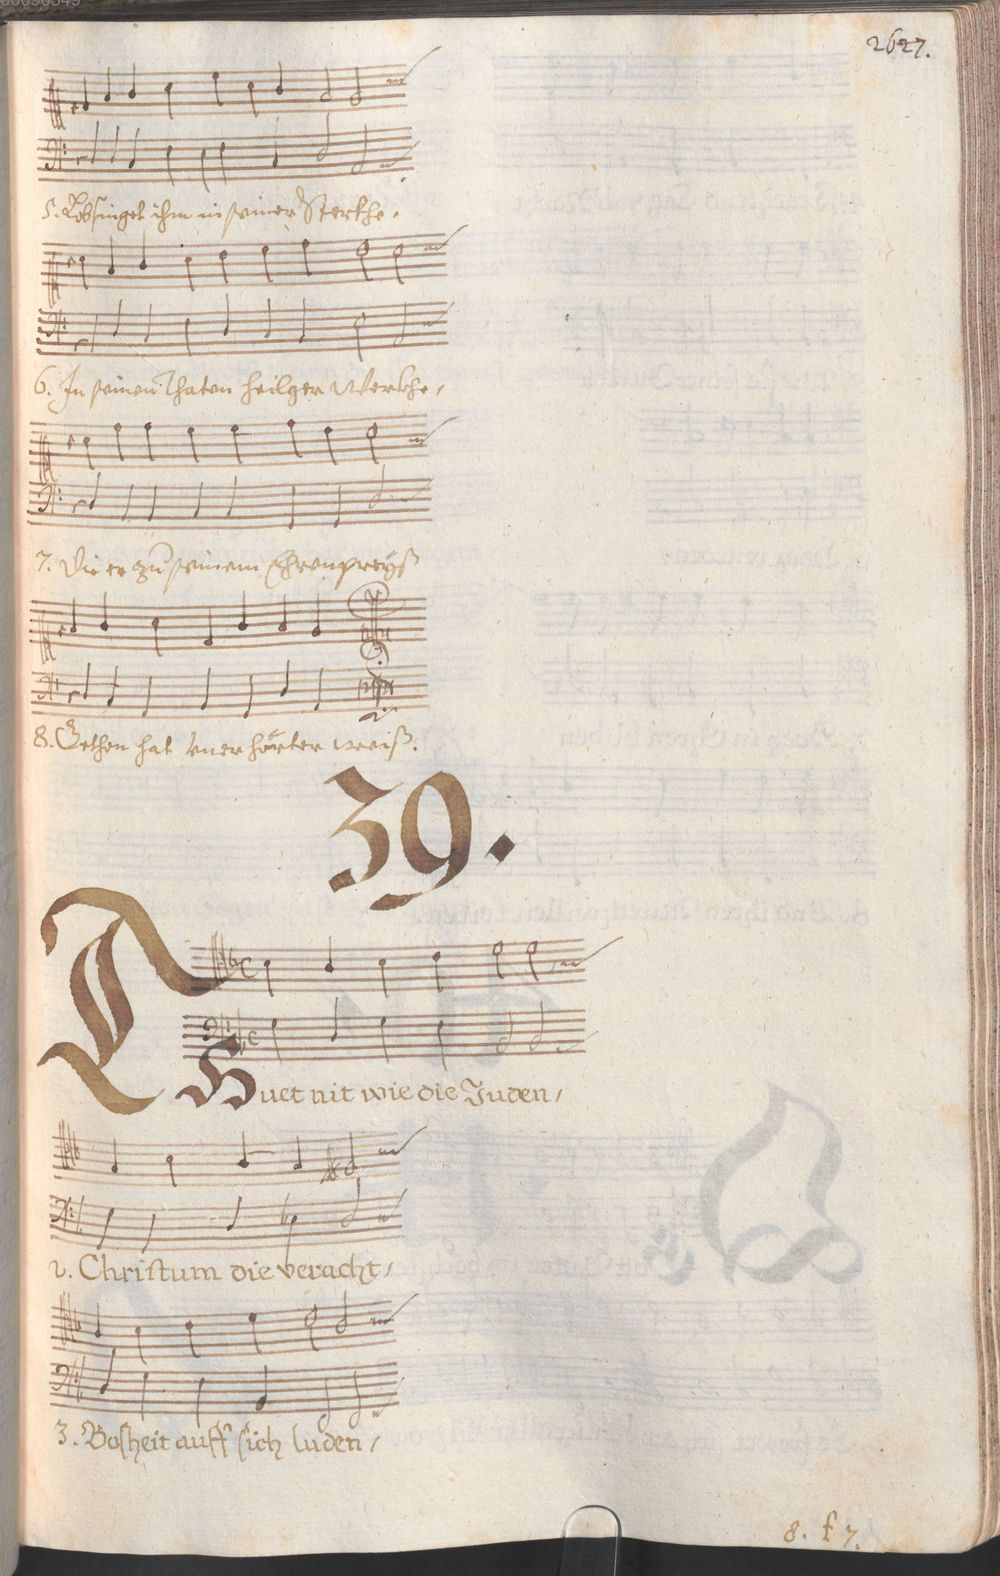 2627.
5. Lobsinget ihm in seiner Sterkhe,
6. In seinen Thaten heilger Werkhe,
7. Die er zu seinem Ehrenpreyß
8. Gethon hat vnerhörter weiß.
39.
Thuet nit wie die Juden,
2. Christum die veracht,
3. Bosheit auff sich luden,
8. f 7.